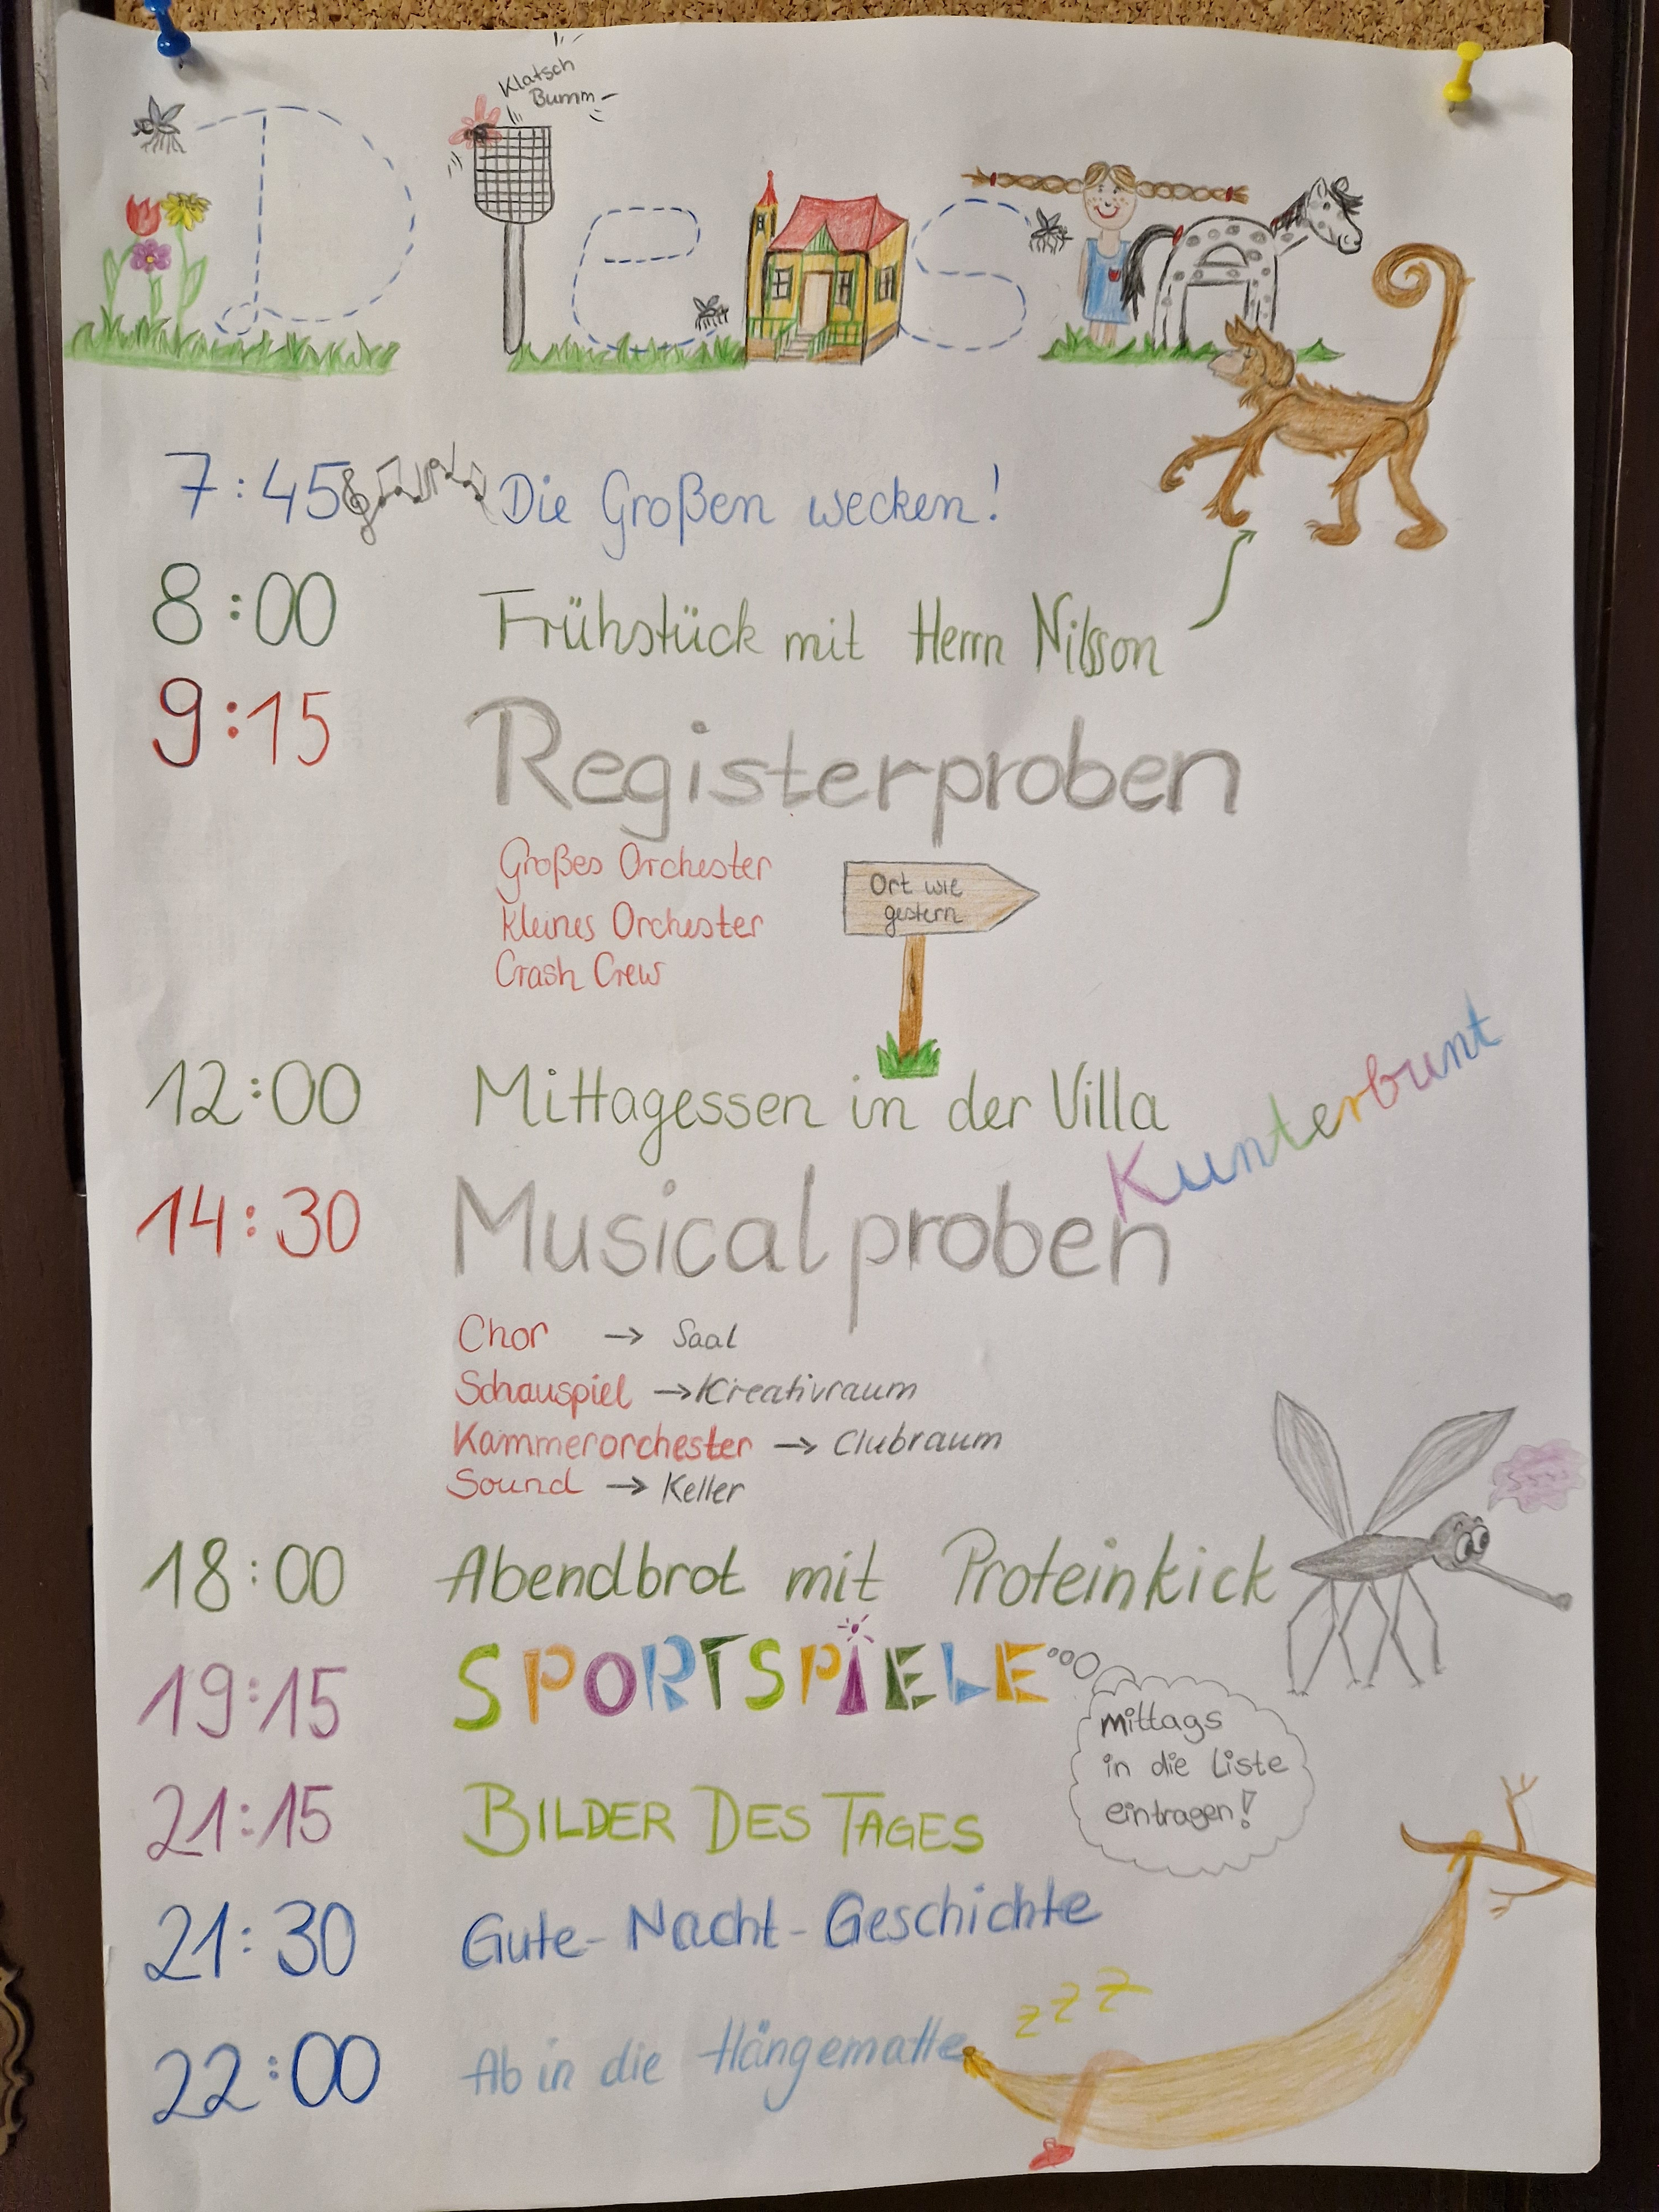 Klatsch
Bumm
D i e n s
7:45 Die Großen wecken!
8:00 Frühstück mit Herrn Nilsson
9:15 Registerproben
Großes Orchester
Kleines Orchester
Crash Crew
Ort wie
gestern
12:00 Mittagessen in der Villa Kunterbunt
14:30 Musicalproben
Chor → Saal
Schauspiel → Kreativraum
Kammerorchester → Clubraum
Sound → Keller
18:00 Abendbrot mit Proteinkick
19:15 SPORTSPIELE
Mittags
in die Liste
eintragen!
21:15 BILDER DES TAGES
21:30 Gute-Nacht-Geschichte
22:00 Ab in die Hängematte
z z z